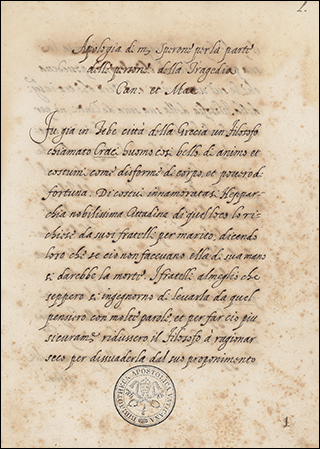 Apologia di m. Sperone per la parte
delle persone della Tragedia
Can. et Mac.
Fu gia in Tebe città della Grecia un filosofo
chiamato Crate huomo cosi bello di animo et
costumi, come disforme di corpo, et povero di
fortuna. Di costui innamoratasi Hippar-
chia nobilissima Cittadina di quel loco lo ri-
chiese da suoi fratelli per marito, dicendo
loro che se cio non facevano ella di sua mano
si darebbe la morte. I fratelli al meglio che
seppero s'ingegnorno di levarla da quel
pensiero con molte parole, et per far cio piu
sicuram.te ridussero il filosofo à ragionar
seco per disuaderla dal suo proponimento
BIBLIOTHECA APOSTOLICA VATICANA
1